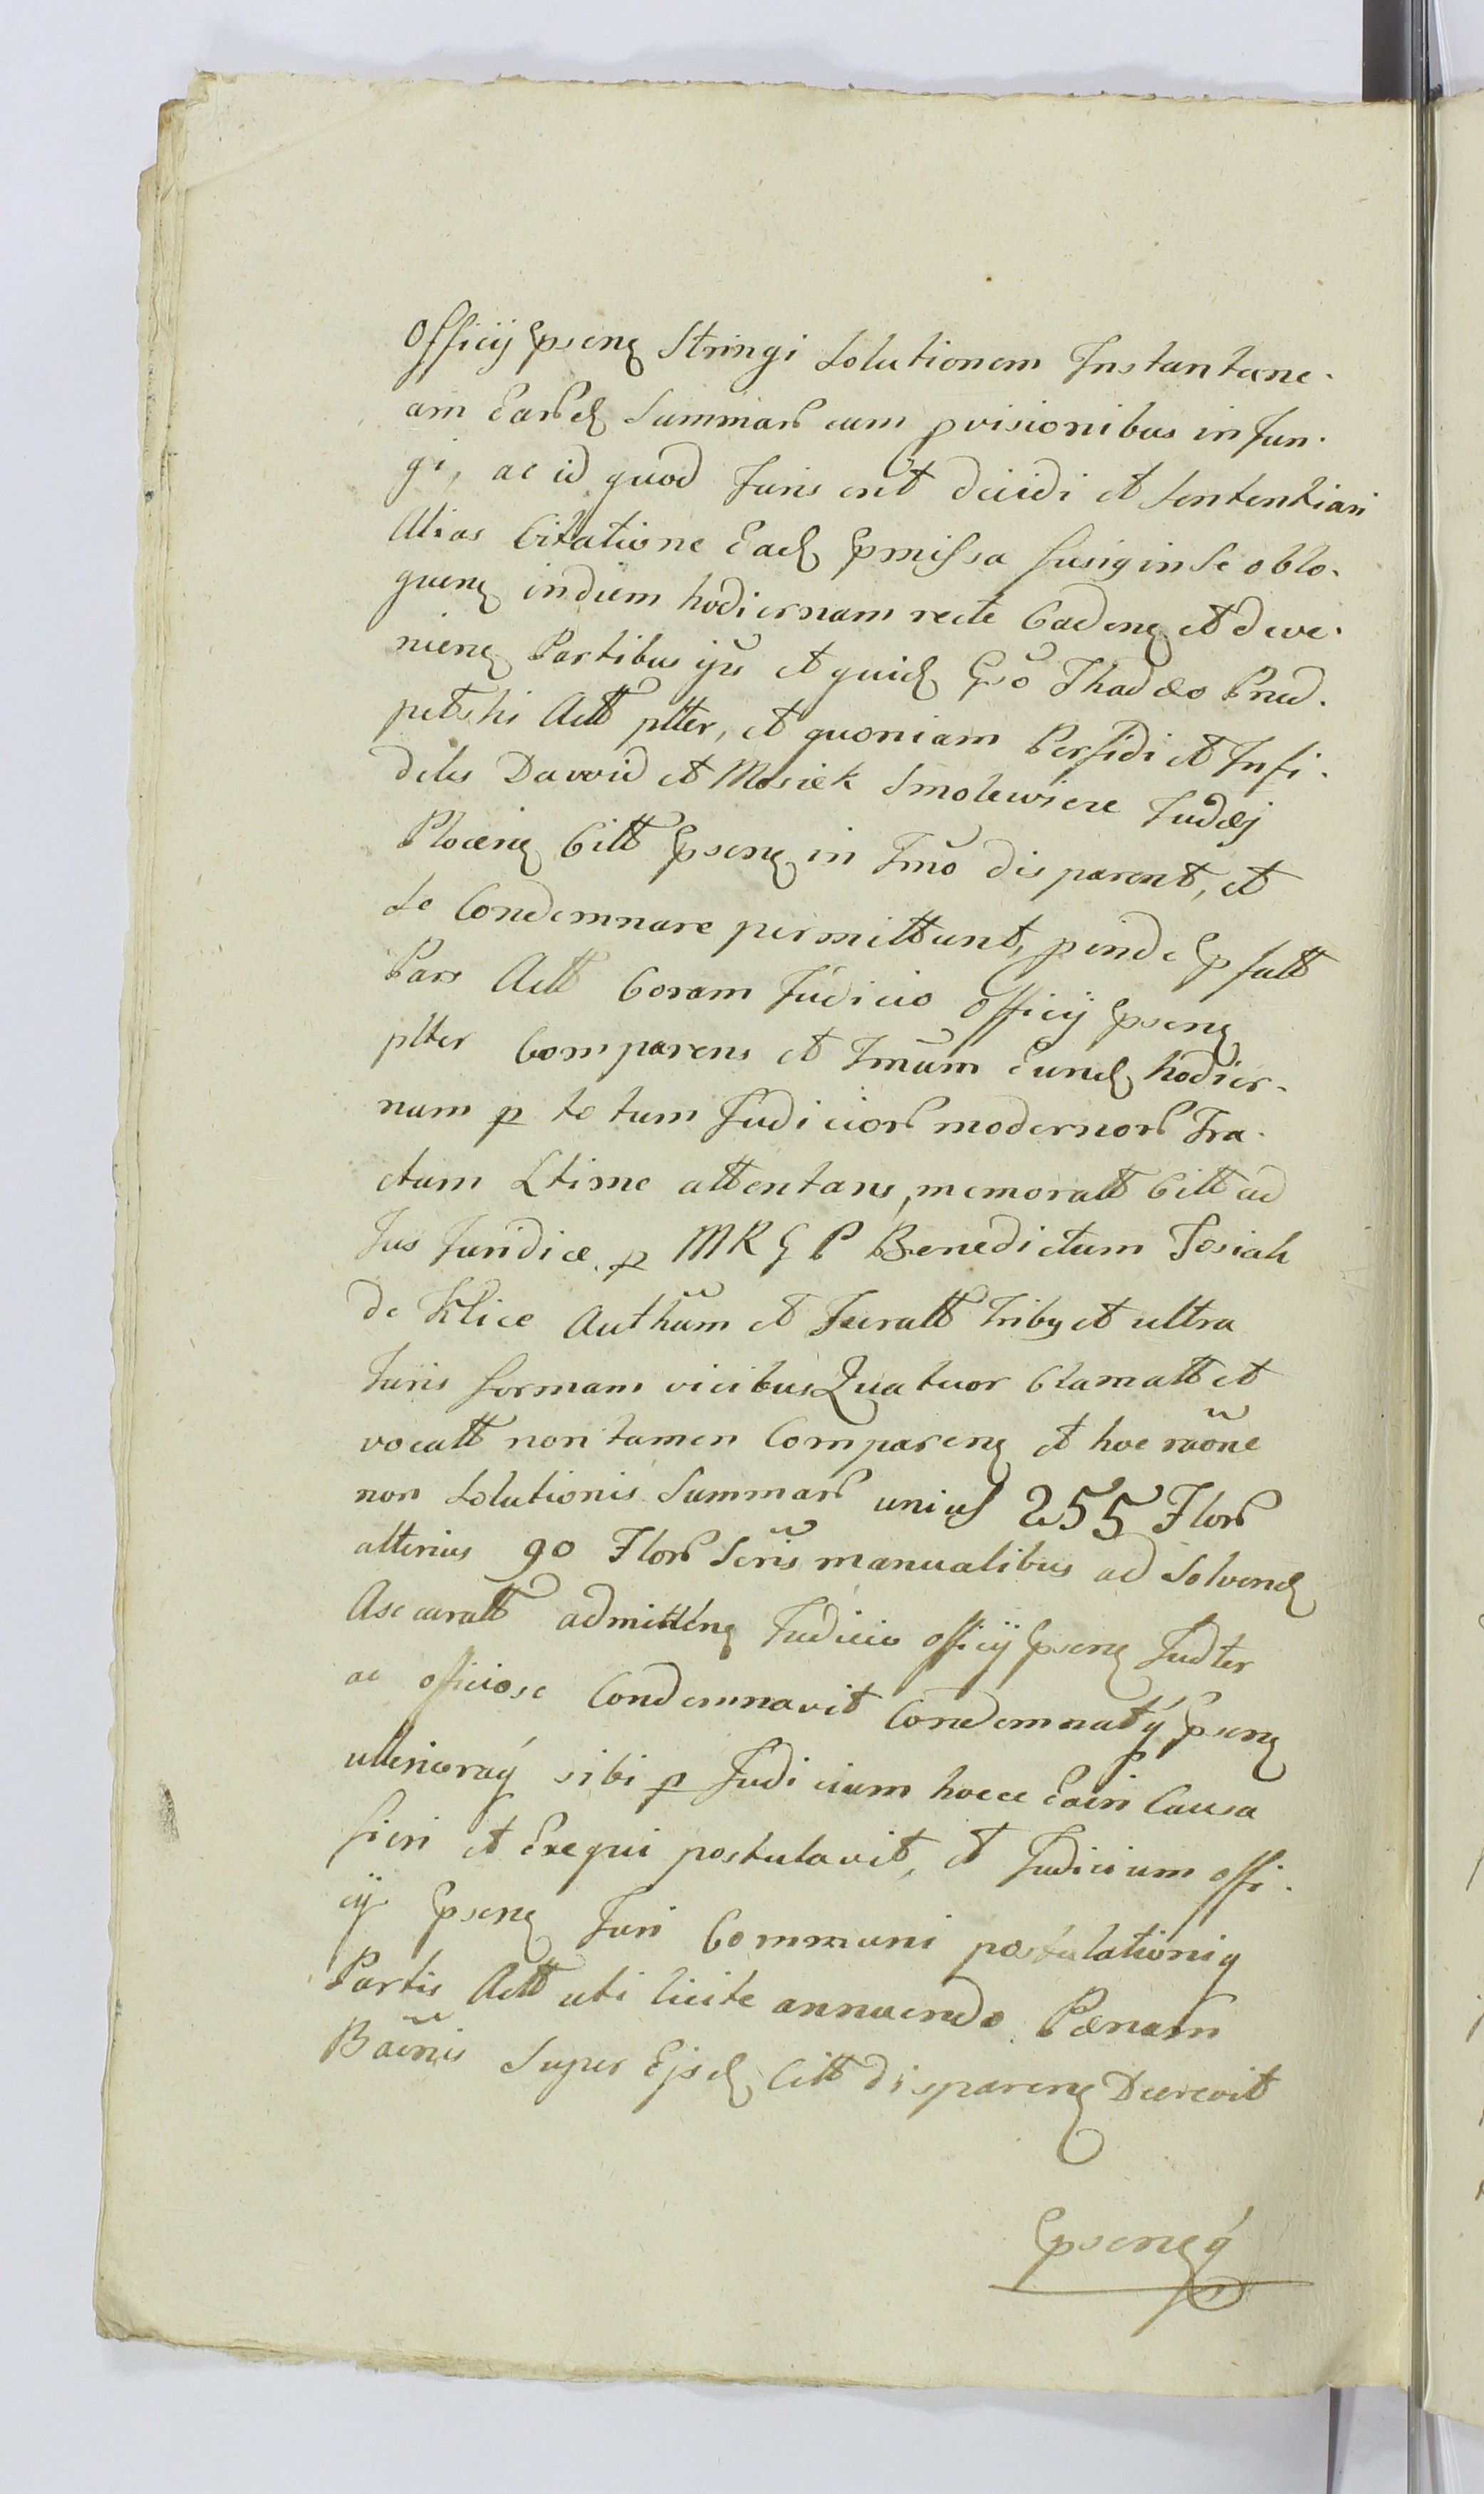 Officij Ppseng Stringi Solutionem Instantane.
am Earld Summarb cum pvisionibus in Jun.
gi, ac id quod Juris erit decidi et Sententiari
Alias Citatione Ead Ppmissa fusig in Se oblo.
queng in diem hodiernam recte Cadeng et deve.
nieng Partibus ijs et quid Gso Thadæo Prud.
petski Actt plter, et quoniam Perfidi et Infi.
deles Dawid et Mosiek Smolewicze Judæj
Ploceng Citt Ppseng in Tmo disparent, et
Se Condemnare permittunt, pinde Ppfatt
Pars Actt Coram Judicio Officij Ppseng
plter Comparens et Tmum Eund hodier.
num p totum Judiciorb modernorb Tra.
ctum Ltime attentans, memoratt Citt ad
Jus Juridice p MRGP Benedictum Josiah
de Klice Authum et Juratt tribg et ultra
Juris formam vicibus Quatuor Clamatt et
vocatt non tamen Compareng et hoc raone
non Solutionis Summarb unius 255 Florb
alterius 90 Florb Scris manualibus ad Solvend
Asecuratt admitteng Judicio officij Ppseng Judter
ac officiose Condemnavit Condemnatq Ppseng
ulterioraq sibi p Judicium hocce Eain Causa
fieri et Exequi postulavit, et Judicium offi.
cij Ppseng Juri Communi postulationiq
Partis Actt uti licite annuendo Pænam
Baenis Super Ejsd Citt dispareng Decrevit
Ppsengq